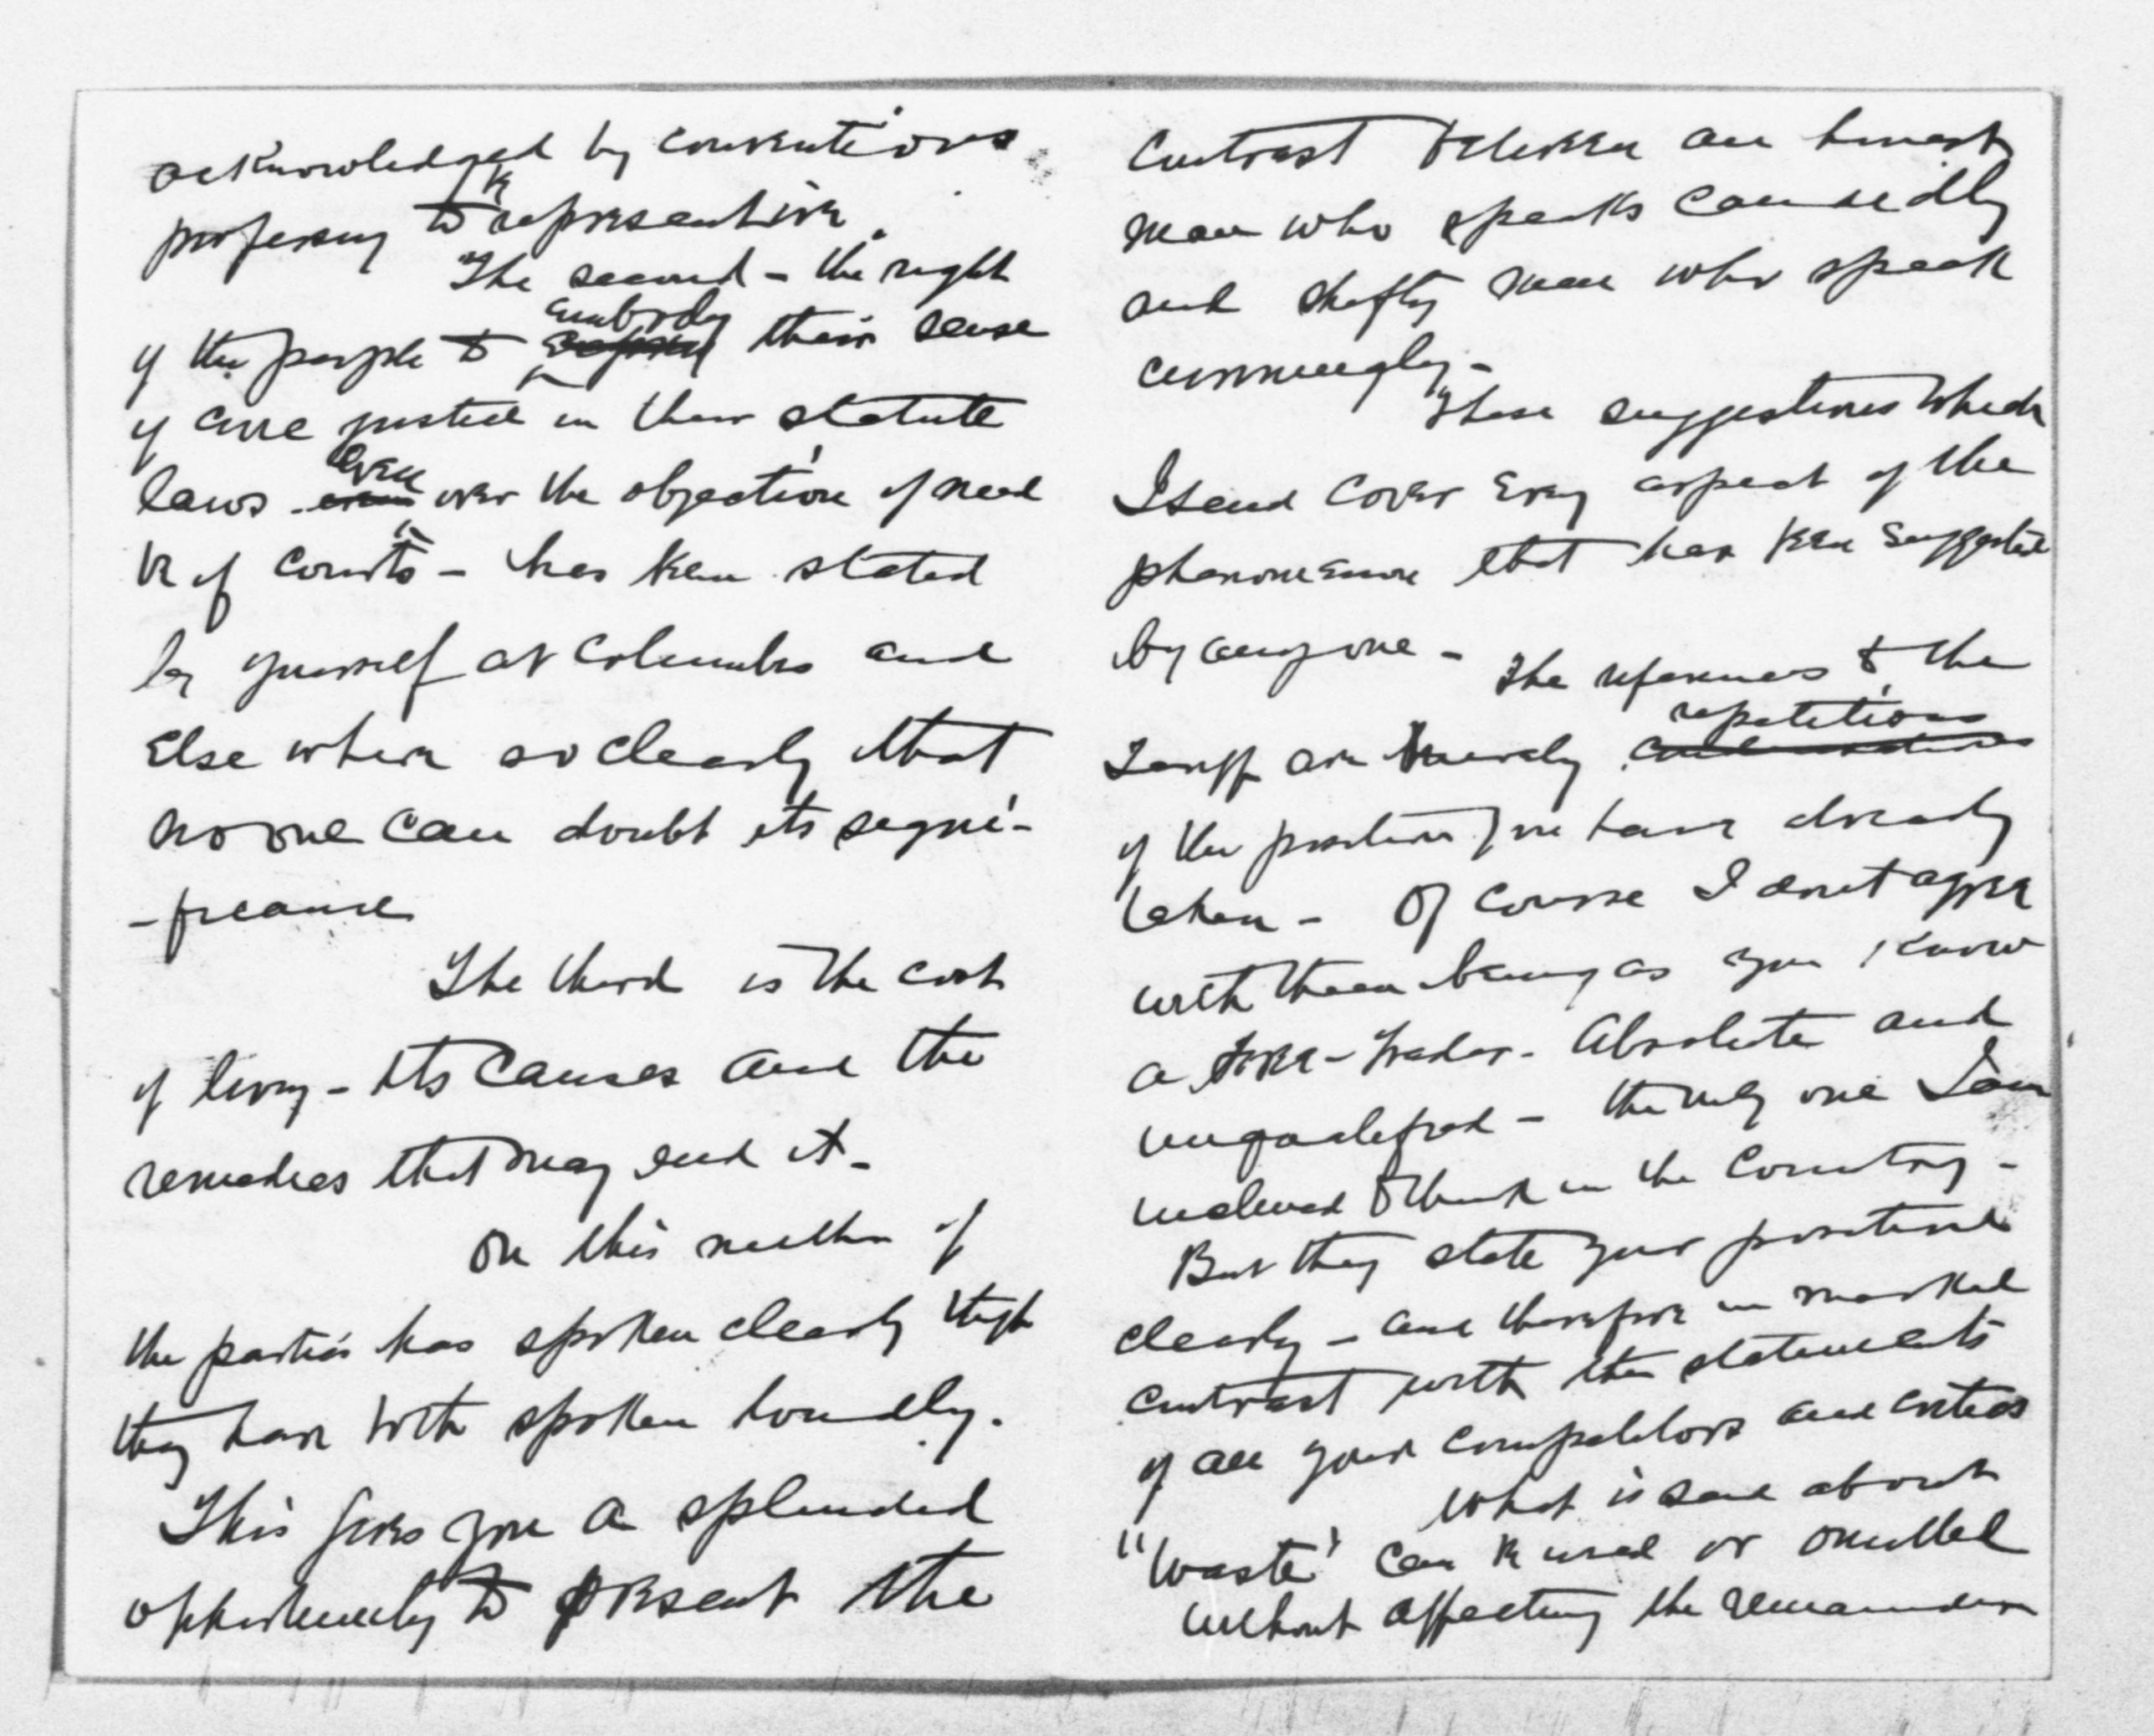 acknowledged by conventions
professing to be representive.
The second - the right
of the people to embody their sense
of civic justice in their statute
laws - even over the objection if need
be of courts - has been stated
by yourself at Columbus and
Elsewhere so clearly that
no one can doubt its signi-
-ficance
The third is the cost
of living - its causes and the
remedies that may end it -
On this neither of
the parties has spoken clearly tho
they have both spoken loudly.
This gives you a splendid
opportunity to present the
contrast between an honest
man who speaks candidly
and shifty men who speak
cunningly -
These suggestions which
I send cover every aspect of the
phenomenon that has been suggested
by anyone - The references to the
Tariff are merely repetitions
of the position you have already
taken - Of course I don't agree
with them being as you know
a free-trader - Absolute and
unqualified - the only one I am
inclined to think in the country -
But they state your position
clearly - and therefore in marked
contrast with the statements
of all your competitors and critics
What is said about
"Waste" can be used or omitted
without affecting the remainder